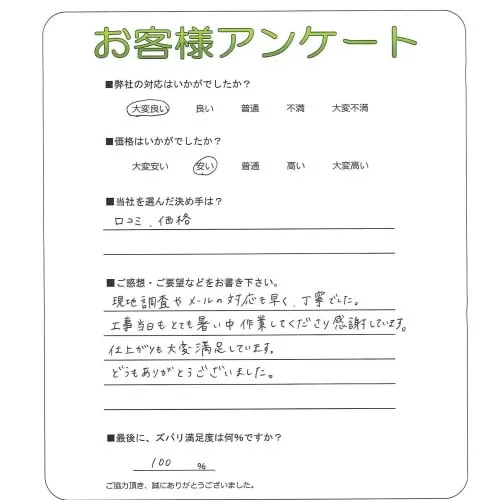 お客様アンケート
■弊社の対応はいかがでしたか？
大変良い 良い 普通 不満 大変不満
■価格はいかがでしたか？
大変安い 安い 普通 高い 大変高い
■当社を選んだ決め手は？
口コミ、価格
■ご感想・ご要望などをお書き下さい。
現地調査やメールの対応も早く、丁寧でした。
工事当日もとても暑い中作業してくださり感謝しています。
仕上がりも大変満足しています。
どうもありがとうございました。
■最後に、ズバリ満足度は何％ですか？
100 ％
ご協力頂き、誠にありがとうございました。